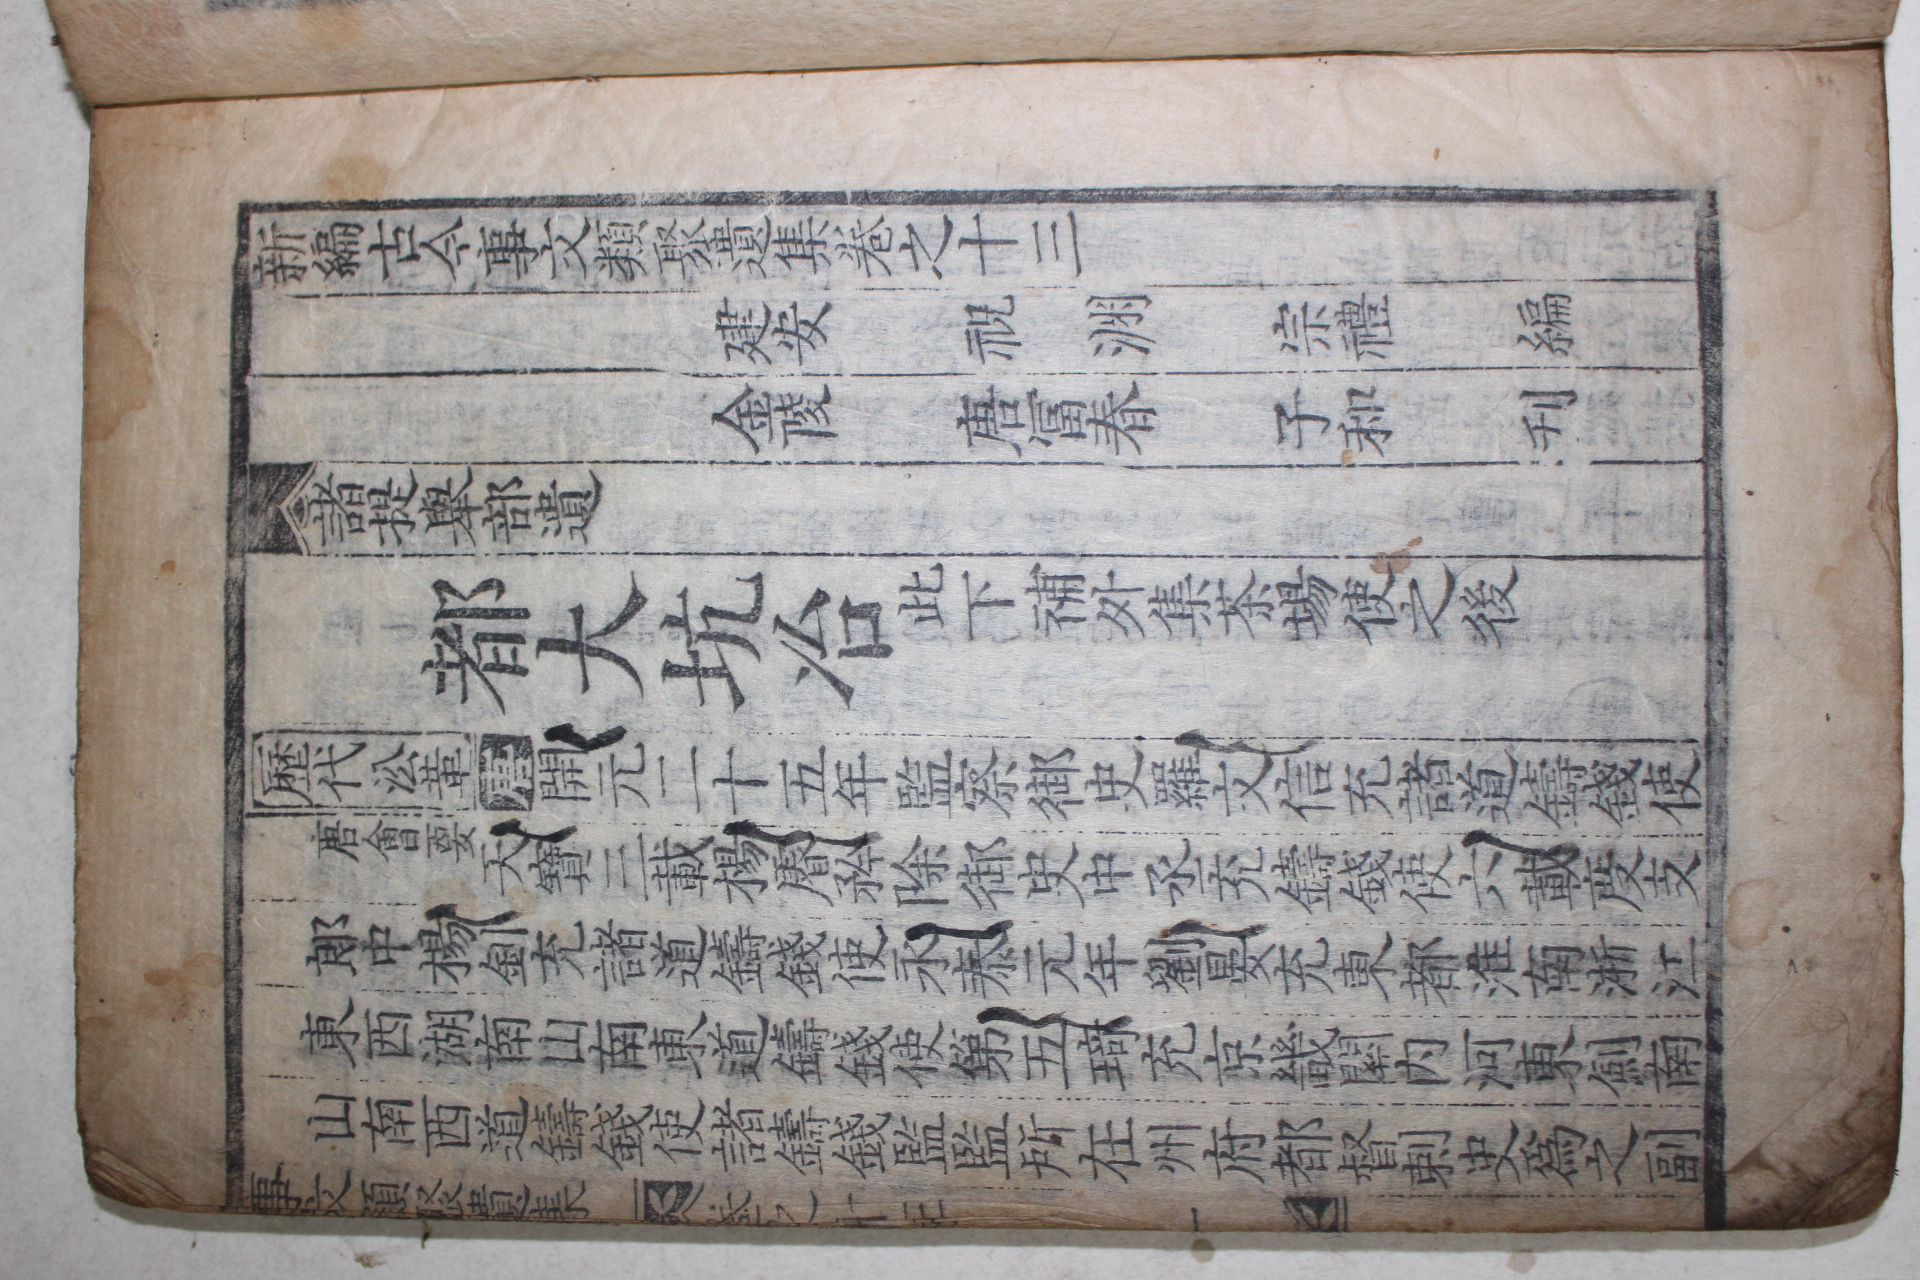 新編古今事文類聚遺集卷之十三
建安 祝 淵 宗禮 編
金陵 唐富春 子和 刋
諸提舉部遺
都大坑冶 此下補外集茶場使之後
歷代㳂革唐開元二十五年監察御史羅文信充諸道鑄錢使
唐會要天寶三載楊慎矜除御史中丞充鑄錢使六載度支
郎中楊釗充諸道鑄錢使永泰元年劉晏充東都淮南浙江
東西湖南山南東道鑄錢使第五琦充京畿關內河東劍南
山南西道鑄錢使諸鑄錢監監所在州府都督刺史爲之副
事文類聚遺集 卷之十三 一